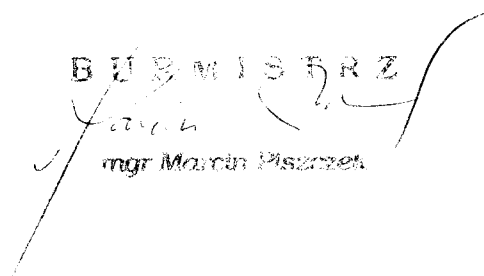 B U R M I S T R Z
mgr Marcin Piszczek